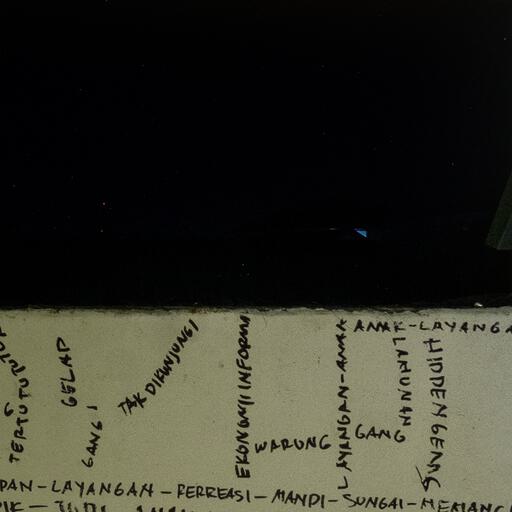 TERTUTUP
GELAP
GANG
TAK DIKUNJUNGI
EKONOMI INFORM
WARUNG
LAYANGAN-ANAK
ANAK-LAYANGA
GANG
LAMUNAN
HIDDEN GENUS
PAN-LAYANGAN-REKREASI-MANDI-SUNGAI-MEMANC